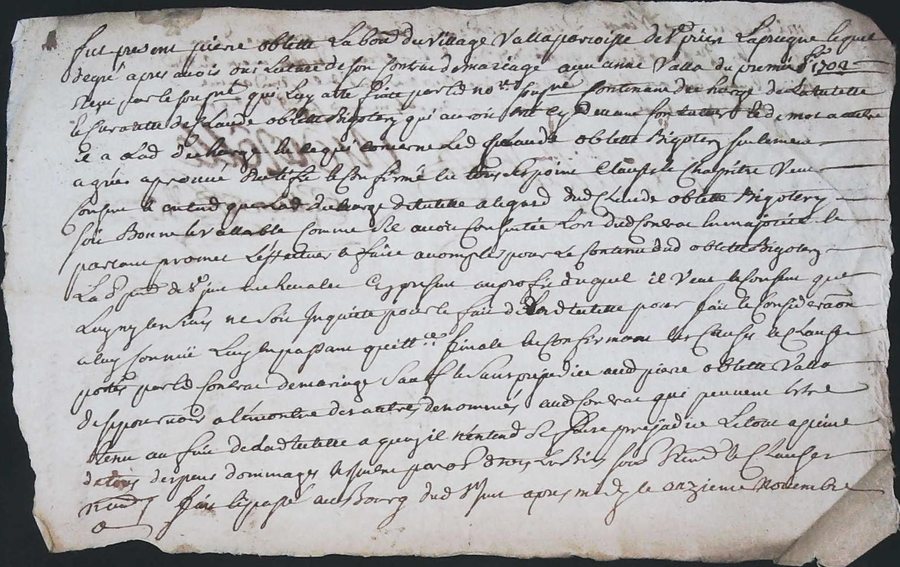 fut present piere oblette Labour du village Valla paroisse de St priet Laprugne lequel
degré apres avoir oui Lecture de son Contrat de mariage avec anne Valla du premier 1702
Reçu par le soubsné qui Luy a esté faite par led notre contenant decharge de La tutelle
et Curatelle de Claude oblette Bigotery qui avoit son tutteur de mot a autre
et a Lad decharge en ce qui concerne Led Claude oblette Bigotery seulement
agrée aprouvé Ratifié et Confirmé en tous ses points Clauses et Chapitre Veut
Consent et entend que Lad decharge de tutelle a legard dud Claude oblette Bigotery
soit Bonne et Vallable Comme sil avoit Lors dud Contrat la majorité et
partant promet L'effectuer et faire acomplir pour le Contenu dud oblette Bigotery
La de St cy present au profit duquel il Veut et Consent que
Luy ny les siens ne soit Inquietté pour le fait de lad tutelle pour fait et Consideraon
a luy Connüe Luy en passant quittce finale et Confirmaon les Causes et Clauses
portés par led Contrat de mariage sauf et sans prejudice aud piere oblette Valla
de se pourvoir a lencontre des autres denommés aud Contrat qui peuvent estre
tenu au fait de lad tutelle a quoy il n'entend se faire prejudice Le tout a peine
de tous depens dommages et par obl Biens sousm Renon et Clauses
fait et passé au Bourg dud St apres midy le onzieme Novembre